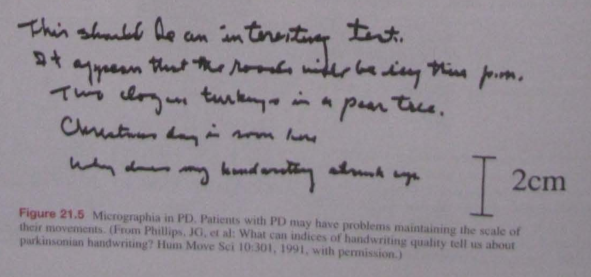 This should be an interesting test.
It appears that the roads will be icy this p.m.
Two turkeys in a pear tree.
Christmas day is soon here
Why does my handwriting shrink
2cm
Figure 21.5 Micrographia in PD. Patients with PD may have problems maintaining the scale of
their movements. (From Phillips, JG, et al: What can indices of handwriting quality tell us about
parkinsonian handwriting? Hum Move Sci 10:301, 1991, with permission.)